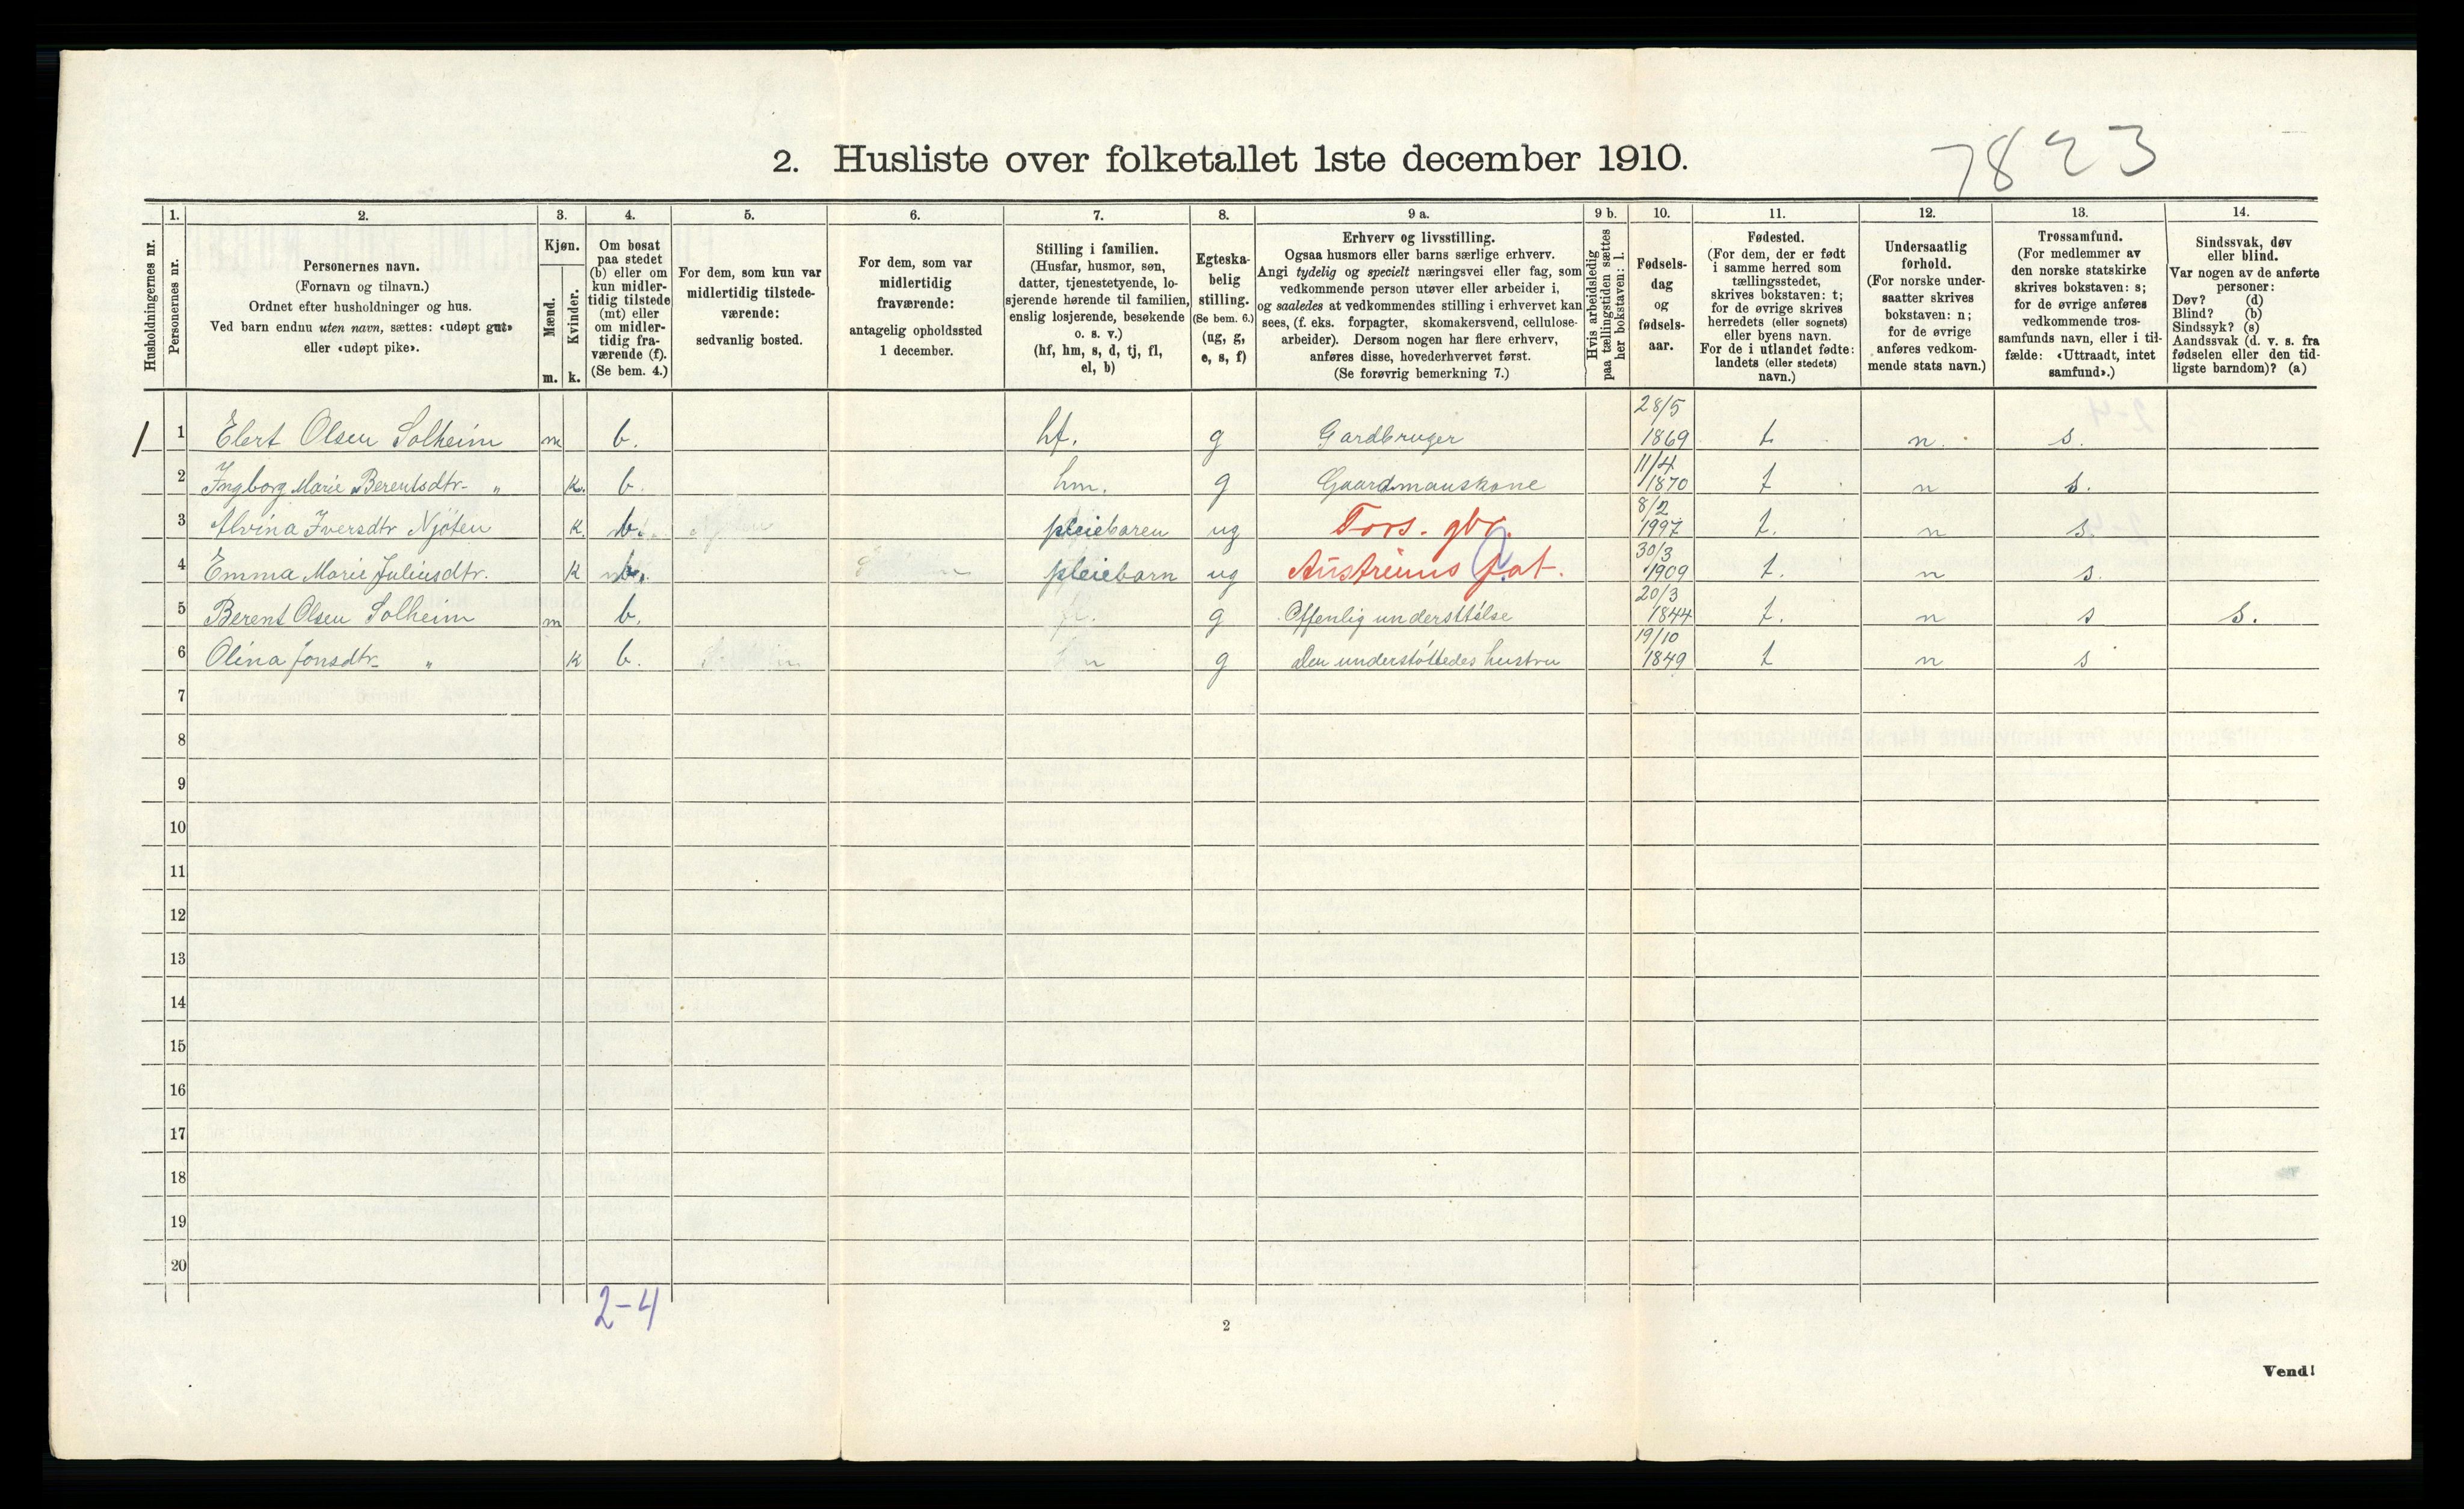 2. Husliste over folketallet 1ste december 1910.
7823
Husholdningernes nr.
1.
Personernes nr.
2.
Personernes navn.
(Fornavn og tilnavn.)
Ordnet efter husholdninger og hus.
Ved barn endnu uten navn, sættes: «udøpt gut»
eller «udøpt pike».
3.
Kjøn.
Mænd.
Kvinder.
m. k.
4.
Om bosat
paa stedet
(b) eller om
kun midler-
tidig tilstede
(mt) eller
om midler-
tidig fra-
værende (f).
(Se bem. 4.)
5.
For dem, som kun var
midlertidig tilstede-
værende:
sedvanlig bosted.
6.
For dem, som var
midlertidig
fraværende:
antagelig opholdssted
1 december.
7.
Stilling i familien.
(Husfar, husmor, søn,
datter, tjenestetyende, lo-
sjerende hørende til familien,
enslig losjerende, besøkende
o. s. v.)
(hf, hm, s, d, tj, fl,
el, b)
8.
Egteska-
belig
stilling.
(Se bem. 6.)
(ug, g,
e, s, f)
9 a.
Erhverv og livsstilling.
Ogsaa husmors eller barns særlige erhverv.
Angi tydelig og specielt næringsvei eller fag, som
vedkommende person utøver eller arbeider i,
og saaledes at vedkommendes stilling i erhvervet kan
sees, (f. eks. forpagter, skomakersvend, cellulose-
arbeider). Dersom nogen har flere erhverv,
anføres disse, hovederhvervet først.
(Se forøvrig bemerkning 7.)
9 b.
Hvis arbeidsledig
paa tællingstiden sættes
her bokstaven: l.
10.
Fødsels-
dag
og
fødsels-
aar.
11.
Fødested.
(For dem, der er født
i samme herred som
tællingsstedet,
skrives bokstaven: t;
for de øvrige skrives
herredets (eller sognets)
eller byens navn.
For de i utlandet fødte:
landets (eller stedets)
navn.)
12.
Undersaatlig
forhold.
(For norske under-
saatter skrives
bokstaven: n;
for de øvrige
anføres vedkom-
mende stats navn.)
13.
Trossamfund.
(For medlemmer av
den norske statskirke
skrives bokstaven: s;
for de øvrige anføres
vedkommende tros-
samfunds navn, eller i til-
fælde: «Uttraadt, intet
samfund».)
14.
Sindssvak, døv
eller blind.
Var nogen av de anførte
personer:
Døv? (d)
Blind? (b)
Sindssyk? (s)
Aandssvak (d. v. s. fra
fødselen eller den tid-
ligste barndom)? (a)
1 1 Elert Olsen Solheim m b. hf. g Gardbruger 28/5 1869 t n. s.
2 Ingborg Marie Berentsdtr- „ k. b. hm. g Gaardmanskone 11/4 1870 t n s.
3 Alvina Iversdtr Njöten k. b. pleiebaren ug Fors. gbr. 8/2 1997 t. n s.
4 Emma Marie Juliusdtr. k b. pleiebarn ug 30/3 1909 t. n s.
5 Berent Olsen Solheim m b. g Offenlig understtölse 20/3 1844 t. n s s.
6 Olina Jonsdtr- „ k b. g den understöttedes hustru 19/10 1849 t n s
7
8
9
10
11
12
13
14
15
16
17
18
19
20
2-4
2
Vend!